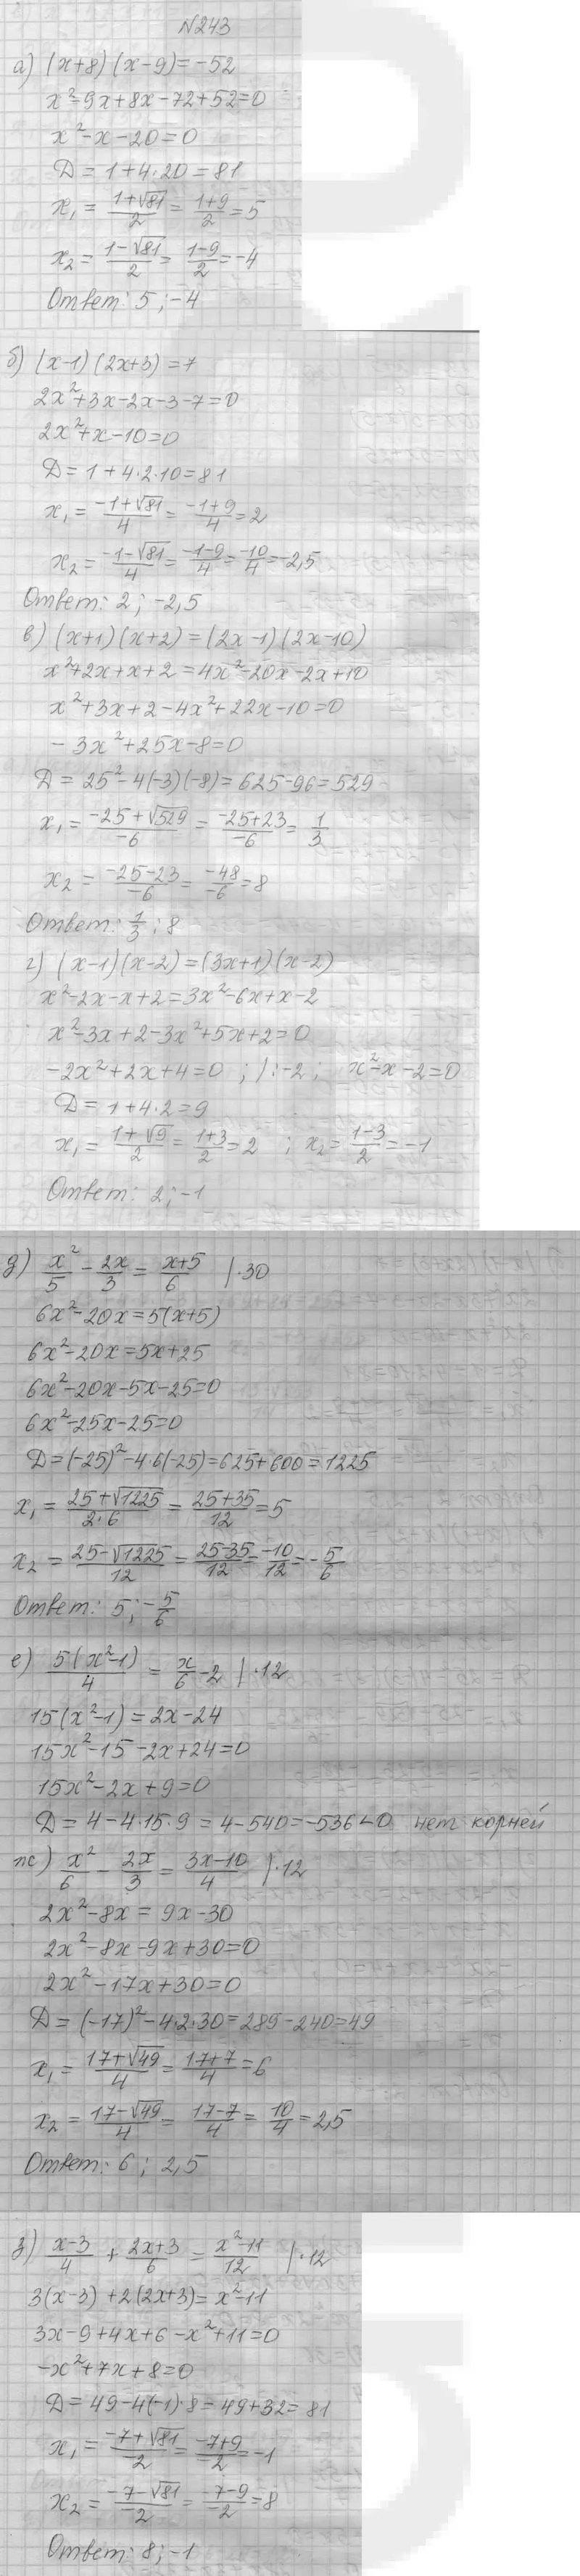 N243
а) (x+8)(x-9)=-52
x²-9x+8x-72+52=0
x²-x-20=0
D=1+4·20=81
x₁=(1+√81)/2=(1+9)/2=5
x₂=(1-√81)/2=(1-9)/2=-4
Ответ: 5; -4
б) (x-1)(2x+3)=7
2x²+3x-2x-3-7=0
2x²+x-10=0
D=1+4·2·10=81
x₁=(-1+√81)/4=(-1+9)/4=2
x₂=(-1-√81)/4=(-1-9)/4=-10/4=-2,5
Ответ: 2; -2,5
в) (x+1)(x+2)=(2x-1)(2x-10)
x²+2x+x+2=4x²-20x-2x+10
x²+3x+2-4x²+22x-10=0
-3x²+25x-8=0
D=25²-4(-3)(-8)=625-96=529
x₁=(-25+√529)/-6=(-25+23)/-6=1/3
x₂=(-25-23)/-6=-48/-6=8
Ответ: 1/3; 8
г) (x-1)(x-2)=(3x+1)(x-2)
x²-2x-x+2=3x²-6x+x-2
x²-3x+2-3x²+5x+2=0
-2x²+2x+4=0 ; |:-2 ; x²-x-2=0
D=1+4·2=9
x₁=(1+√9)/2=(1+3)/2=2 ; x₂=(1-3)/2=-1
Ответ: 2; -1
д) x²/5-2x/3=(x+5)/6 |·30
6x²-20x=5(x+5)
6x²-20x=5x+25
6x²-20x-5x-25=0
6x²-25x-25=0
D=(-25)²-4·6(-25)=625+600=1225
x₁=(25+√1225)/2·6=(25+35)/12=5
x₂=(25-√1225)/12=(25-35)/12=-10/12=-5/6
Ответ: 5; -5/6
е) 5(x²-1)/4=x/6-2 |·12
15(x²-1)=2x-24
15x²-15-2x+24=0
15x²-2x+9=0
D=4-4·15·9=4-540=-536<0 нет корней
ж) x²/6-2x/3=(3x-10)/4 |·12
2x²-8x=9x-30
2x²-8x-9x+30=0
2x²-17x+30=0
D=(-17)²-4·2·30=289-240=49
x₁=(17+√49)/4=(17+7)/4=6
x₂=(17-√49)/4=(17-7)/4=10/4=2,5
Ответ: 6; 2,5
з) (x-3)/4+(2x+3)/6=(x²-11)/12 |·12
3(x-3)+2(2x+3)=x²-11
3x-9+4x+6-x²+11=0
-x²+7x+8=0
D=49-4(-1)·8=49+32=81
x₁=(-7+√81)/-2=(-7+9)/-2=-1
x₂=(-7-√81)/-2=(-7-9)/-2=8
Ответ: 8; -1